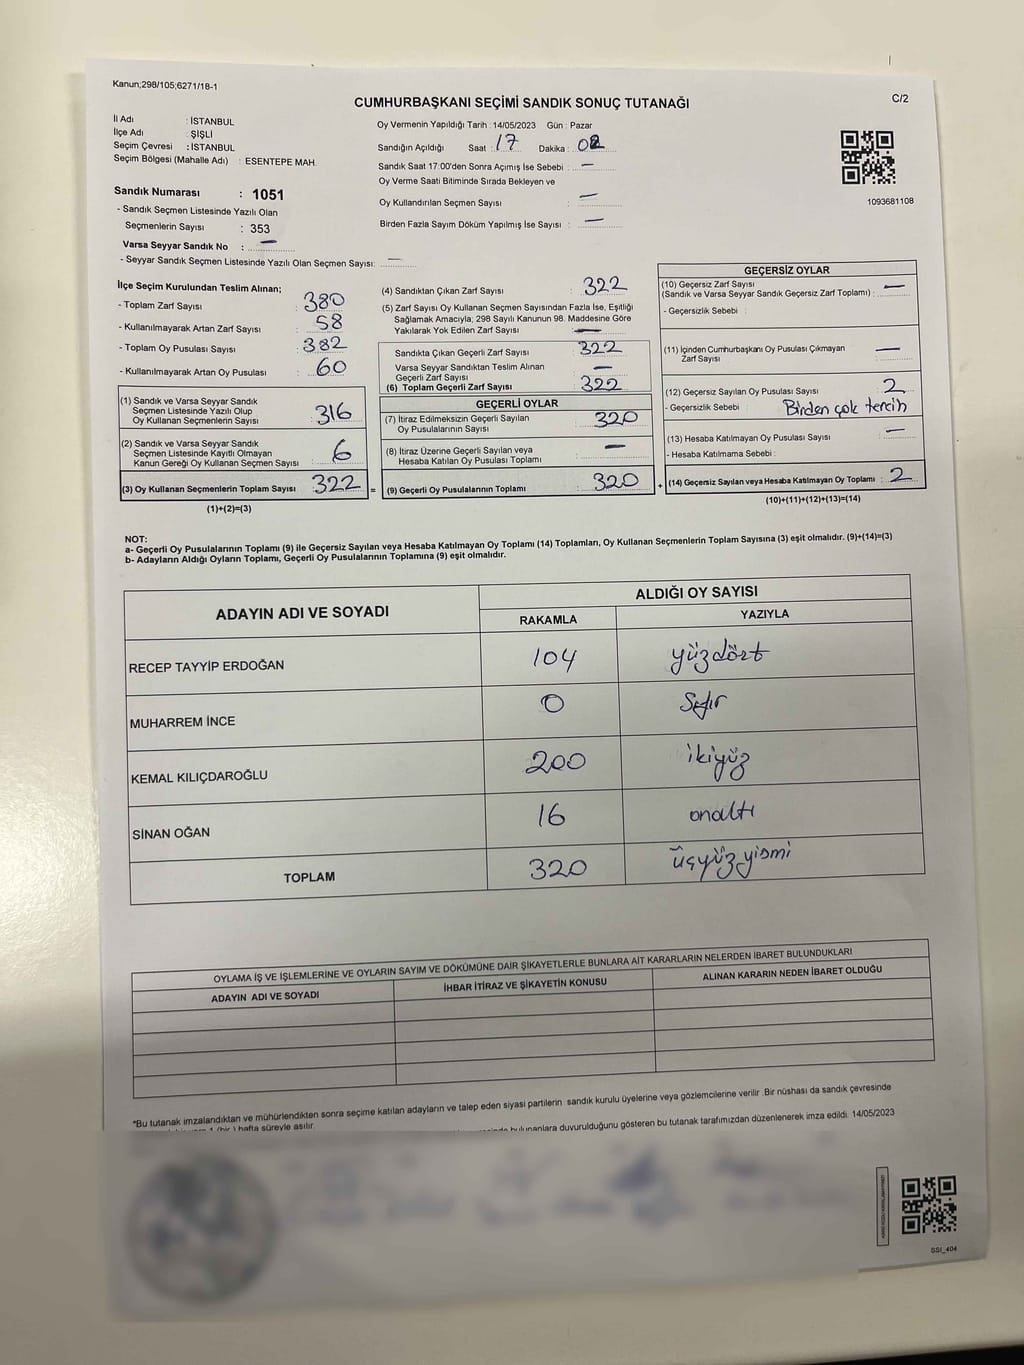 Kanun;298/105;6271/18-1
CUMHURBAŞKANI SEÇİMİ SANDIK SONUÇ TUTANAĞI
C/2
İl Adı : İSTANBUL
İlçe Adı : ŞİŞLİ
Seçim Çevresi : İSTANBUL
Seçim Bölgesi (Mahalle Adı) : ESENTEPE MAH.
Sandık Numarası : 1051
- Sandık Seçmen Listesinde Yazılı Olan
Seçmenlerin Sayısı : 353
Varsa Seyyar Sandık No : —
- Seyyar Sandık Seçmen Listesinde Yazılı Olan Seçmen Sayısı: —
Oy Vermenin Yapıldığı Tarih : 14/05/2023 Gün : Pazar
Sandığın Açıldığı Saat : 17 Dakika : 02
Sandık Saat 17:00'den Sonra Açımış İse Sebebi : —
Oy Verme Saati Bitiminde Sırada Bekleyen ve
Oy Kullandırılan Seçmen Sayısı : —
Birden Fazla Sayım Döküm Yapılmış İse Sayısı : —
1093681108
İlçe Seçim Kurulundan Teslim Alınan;
- Toplam Zarf Sayısı : 380
- Kullanılmayarak Artan Zarf Sayısı : 58
- Toplam Oy Pusulası Sayısı : 382
- Kullanılmayarak Artan Oy Pusulası : 60
(1) Sandık ve Varsa Seyyar Sandık
Seçmen Listesinde Yazılı Olup
Oy Kullanan Seçmenlerin Sayısı : 316
(2) Sandık ve Varsa Seyyar Sandık
Seçmen Listesinde Kayıtlı Olmayan
Kanun Gereği Oy Kullanan Seçmen Sayısı : 6
(3) Oy Kullanan Seçmenlerin Toplam Sayısı : 322 =
(1)+(2)=(3)
(4) Sandıktan Çıkan Zarf Sayısı : 322
(5) Zarf Sayısı Oy Kullanan Seçmen Sayısından Fazla İse, Eşitliği
Sağlamak Amacıyla; 298 Sayılı Kanunun 98. Maddesine Göre
Yakılarak Yok Edilen Zarf Sayısı : —
Sandıkta Çıkan Geçerli Zarf Sayısı : 322
Varsa Seyyar Sandıktan Teslim Alınan
Geçerli Zarf Sayısı : —
(6) Toplam Geçerli Zarf Sayısı : 322
GEÇERLİ OYLAR
(7) İtiraz Edilmeksizin Geçerli Sayılan
Oy Pusulalarının Sayısı : 320
(8) İtiraz Üzerine Geçerli Sayılan veya
Hesaba Katılan Oy Pusulası Toplamı : —
(9) Geçerli Oy Pusulalarının Toplamı : 320 +
GEÇERSİZ OYLAR
(10) Geçersiz Zarf Sayısı
(Sandık ve Varsa Seyyar Sandık Geçersiz Zarf Toplamı) : —
- Geçersizlik Sebebi :
(11) İçinden Cumhurbaşkanı Oy Pusulası Çıkmayan
Zarf Sayısı : —
(12) Geçersiz Sayılan Oy Pusulası Sayısı : 2
- Geçersizlik Sebebi : Birden çok tercih
(13) Hesaba Katılmayan Oy Pusulası Sayısı : —
- Hesaba Katılmama Sebebi :
(14) Geçersiz Sayılan veya Hesaba Katılmayan Oy Toplamı : 2
(10)+(11)+(12)+(13)=(14)
NOT:
a- Geçerli Oy Pusulalarının Toplamı (9) ile Geçersiz Sayılan veya Hesaba Katılmayan Oy Toplamı (14) Toplamları, Oy Kullanan Seçmenlerin Toplam Sayısına (3) eşit olmalıdır. (9)+(14)=(3)
b- Adayların Aldığı Oyların Toplamı, Geçerli Oy Pusulalarının Toplamına (9) eşit olmalıdır.
ADAYIN ADI VE SOYADI
ALDIĞI OY SAYISI
RAKAMLA YAZIYLA
RECEP TAYYİP ERDOĞAN 104 yüzdört
MUHARREM İNCE 0 Sıfır
KEMAL KILIÇDAROĞLU 200 ikiyüz
SİNAN OĞAN 16 onaltı
TOPLAM 320 üçyüzyirmi
OYLAMA İŞ VE İŞLEMLERİNE VE OYLARIN SAYIM VE DÖKÜMÜNE DAİR ŞİKAYETLERLE BUNLARA AİT KARARLARIN NELERDEN İBARET BULUNDUKLARI
ADAYIN ADI VE SOYADI İHBAR İTİRAZ VE ŞİKAYETİN KONUSU ALINAN KARARIN NEDEN İBARET OLDUĞU
*Bu tutanak imzalandıktan ve mühürlendikten sonra seçime katılan adayların ve talep eden siyasi partilerin sandık kurulu üyelerine veya gözlemcilerine verilir. Bir nüshası da sandık çevresinde
1 (bir) hafta süreyle asılır.
bulunanlara duyurulduğunu gösteren bu tutanak tarafımızdan düzenlenerek imza edildi. 14/05/2023
SSI_404